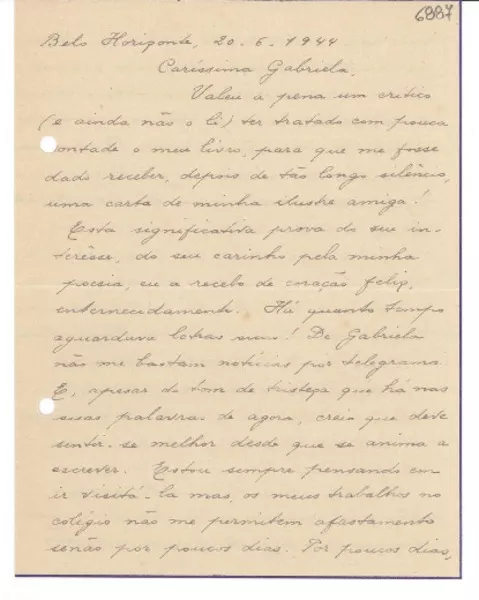 6887
Belo Horizonte, 20. 6. 1944
Caríssima Gabriela,
Valeu a pena um crítico
(e ainda não o li) ter tratado com pouca
vontade o meu livro, para que me fosse
dado receber, depois de tão longo silêncio,
uma carta de minha ilustre amiga!
Esta significativa prova do seu in-
terêsse, do seu carinho pela minha
poesia, eu a recebo de coração feliz,
enternecidamente. Há quanto tempo
aguardava letras suas! De Gabriela
não me bastam notícias por telegrama.
E, apesar do tom de tristeza que há nas
suas palavras de agora, creio que deve
sentir-se melhor desde que se anima a
escrever. Estou sempre pensando em
ir visitá-la mas, os meus trabalhos no
colégio não me permitem afastamento
senão por poucos dias. Por poucos dias,